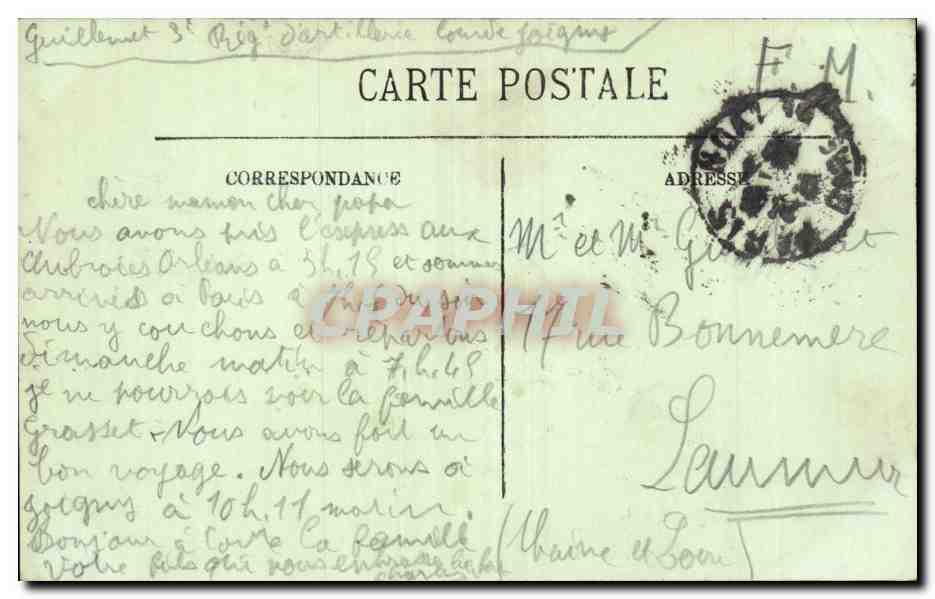 Guillemet 3e Reg. d'artillerie lourde Joigny
F. M.
CARTE POSTALE
CORRESPONDANCE
ADRESSE
chère maman cher papa
Nous avons pris l'express aux
Aubraies Orléans à 5h,15 et sommes
arrivés à Paris à du soir
nous y couchons et repartons
dimanche matin à 7,h,45
je ne pourrois voir la famille
Grasset. Nous avons fait un
bon voyage. Nous serons à
Joigny à 10h,11 matin.
Bonjour à toute la famille
Votre fils qui vous embrasse
Charles
Mr et Mme Guillemet
17 rue Bonnemere
Saumur
(Maine et Loire)
CRAPHIL